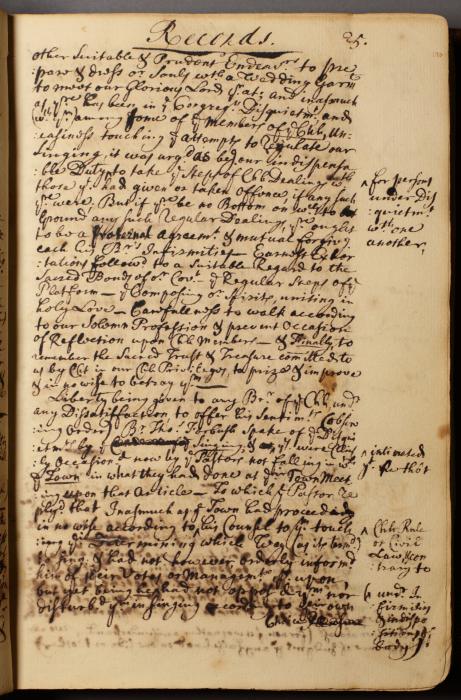 Records. 25.
other Suitable & Prudent Endeavrs. to pre
pare & dress or. Souls with a Wedding Garmt
to meet our Glorious Lord
yre has been in ye Congregn. Disquietmt and
some of ye members of ye Chh, Un
:easiness touching ye attempts to Regulate our
Singing, it was urg'd as be our indispensa
:ble Duty to take ye Steps of Chh Dealing with
those yt. had given or taken Offence, if any such
yre were. But if yre be no Bottom on wch. to
Ground any such Regular Dealing, yn ought
to be a fraternal Agreemt. & mutual forgiving
each his Brs. Infirmities — Earnest Exhor
:tations follow'd to a Suitable Regard to the
Sacred Bonds of or. Covt. — ye Regular Steps of ye
Platform — ye Composing or. Spirits, uniting in
holy Love — Carefullness to walk according
to our Solemn Profession & prevent Occasion
of Reflection upon Chh Members — & Finally to
remember the Sacred Trust & Treasure committed to
us by Cht in our Chh Privileges, to prize & improve
& in no wise to betray ym —
Liberty being given to any Br. of ye Chh, undr
any Dissatisfaction to offer his Sentimts. (observ
ing Order) Br. Tho. Forbush Spake of ye Disqui
etmts. by ye Singing; & yt yy. were
Occasiond now by ye Pastors not falling in wth
ye Town in what they had done at yr Town Meet
ing upon that Article — To which ye Pastor Re
plyd that Inasmuch as ye Town had proceeded
in no wise according to his Counsel to ym touch
:ing ye Determining which Way
to Sing, & had not however, orderly inform'd
him of their Votes or Managemts. upon it
but yet being he had not oppos'd ym nor
disturb'd ym in singing accordg. to their own
Choice & Pleasure
^ for persons
under Dis
:quietmt.
wth. one
another,
^ intimated
ye. he tho't
^ Chh Rule
or Civil
Law, (con
:trary to
undr. In
firmities
& indispo
:sitions of
body)